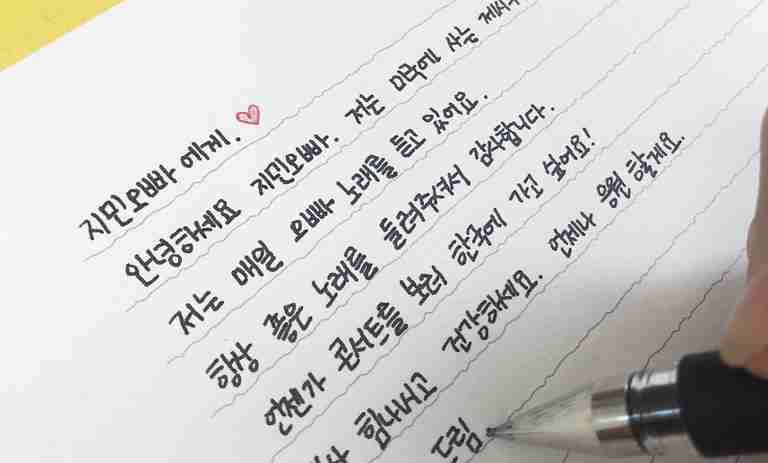 지민오빠에게.
안녕하세요 지민오빠. 저는 미국에 사는
저는 매일 오빠 노래를 듣고 있어요.
항상 좋은 노래를 들려주셔서 감사합니다.
언젠가 콘서트를 보러 한국에 가고 싶어요!
힘내시고 건강하세요. 언제나 응원 할게요.
드림